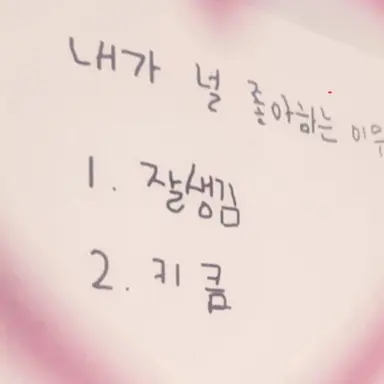 내가 널 좋아하는 이유
1. 잘생김
2. 키큼